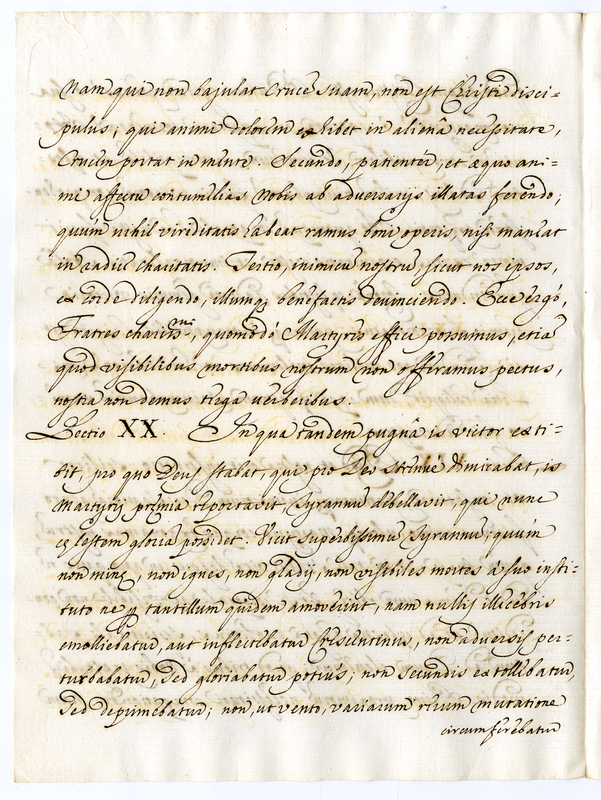 Nam qui non bajulat Crucē suam, non est Christi disci=
pulus; qui animi dolorem exhibet in alienâ necessitate,
Crucem portat in mente. Secundo, patienter, et æquo ani=
mi affectu contumelias nobis ab adversarijs illatas ferendo;
quum nihil viriditatis habeat ramus boni operis, nisi maneat
in radice charitatis. Tertio, inimicū nostrū, sicut nos ipsos,
ex corde diligendo, illumq; benefactis devinciendo. Ecce ergò,
Fratres charissmi, quomodò Martyres effici possumus, etiā
quod visibilibus mortibus nostrum non offeramus pectus,
nostra non demus terga verberibus.
Lectio XX. In qua tandem pugnâ is victor exti=
tit, pro quo Deus stabat, qui pro Deo strenuè dimicabat, is
Martyrij præmia reportavit, Tyrannū debellavit, qui nunc
cælestem gloriā possidet. Vicit superbissimū Tyrannū; quum
non minæ, non ignes, non gladij, non visibiles mortes à suo insti=
tuto ne tantillum quidem amoverint, nam nullis illecebris
emolliebatur, aut inflectebatur Crescentinus, non adversis per=
turbabatur, sed gloriabatur potiùs; non secundis extollebatur,
sed deprimebatur; non, ut vento, variarum rerum mutatione
circumferebatur